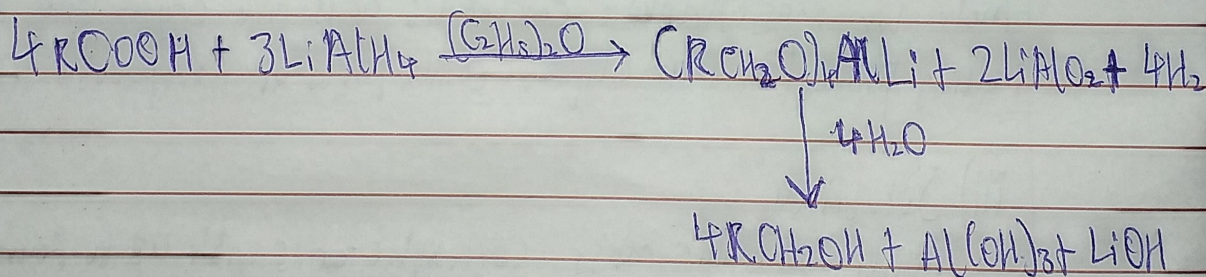 4RCOOH + 3LiAlH4 (C2H5)2O → (RCH2O)4AlLi + 2LiAlO2 + 4H2
↓ 4H2O
4RCH2OH + Al(OH)3 + LiOH